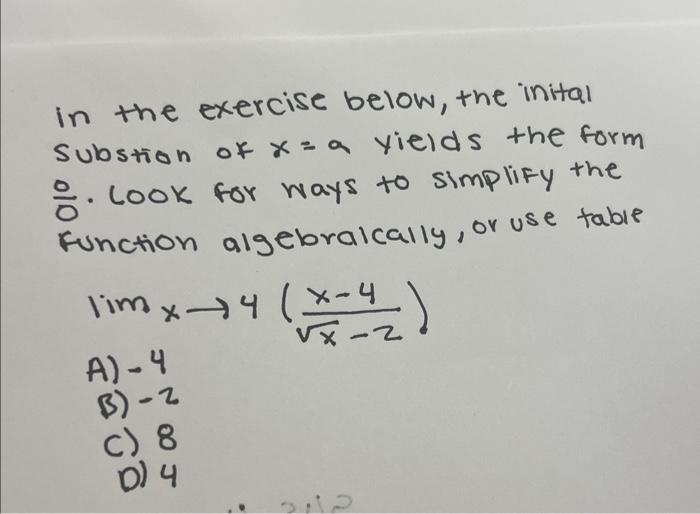 in the exercise below, the inital
Substion of x = a yields the form
0/0. Look for ways to simplify the
function algebraically, or use table
lim x→4 (x-4/√x-2)
A) -4
B) -2
C) 8
D) 4